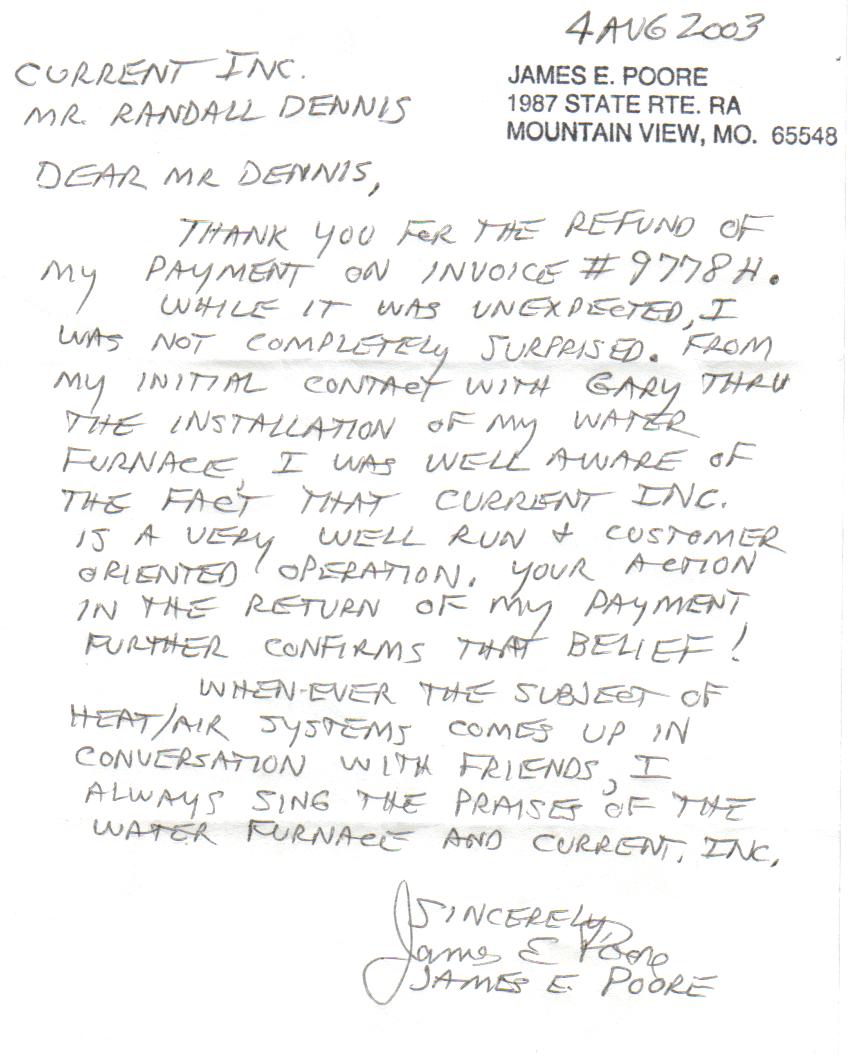 4 AUG 2003
CURRENT INC.
MR. RANDALL DENNIS
JAMES E. POORE
1987 STATE RTE. RA
MOUNTAIN VIEW, MO. 65548
DEAR MR DENNIS,
THANK YOU FOR THE REFUND OF
MY PAYMENT ON INVOICE # 9778H.
WHILE IT WAS UNEXPECTED, I
WAS NOT COMPLETELY SURPRISED. FROM
MY INITIAL CONTACT WITH GARY THRU
THE INSTALLATION OF MY WATER
FURNACE, I WAS WELL AWARE OF
THE FACT THAT CURRENT INC.
IS A VERY WELL RUN & CUSTOMER
ORIENTED OPERATION. YOUR ACTION
IN THE RETURN OF MY PAYMENT
FURTHER CONFIRMS THAT BELIEF!
WHEN-EVER THE SUBJECT OF
HEAT/AIR SYSTEMS COMES UP IN
CONVERSATION WITH FRIENDS, I
ALWAYS SING THE PRAISES OF THE
WATER FURNACE AND CURRENT, INC.
SINCERELY,
James E Poore
JAMES E. POORE